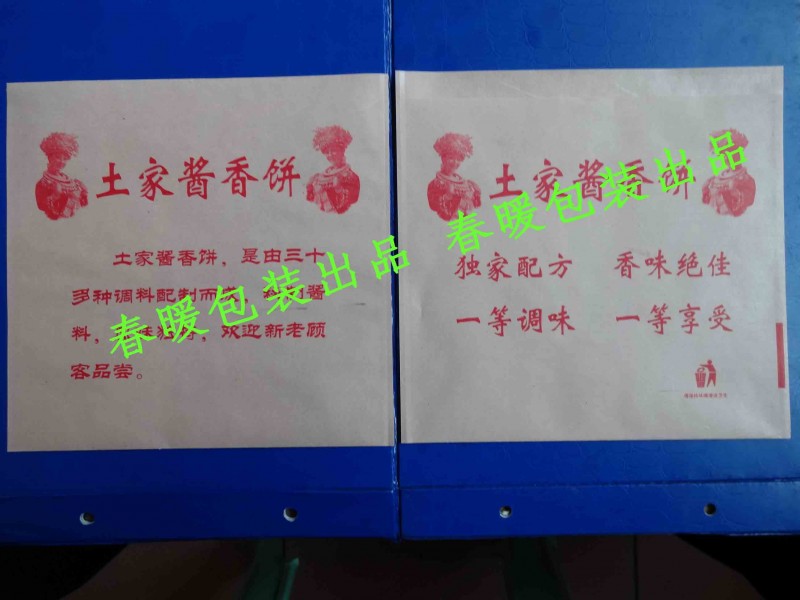 土家酱香饼
土家酱香饼，是由三十
多种调料配制而成，
酱
料，
欢迎新老顾
客品尝。
春暖包装出品
土家酱香饼
独家配方 香味绝佳
一等调味 一等享受
春暖包装出品